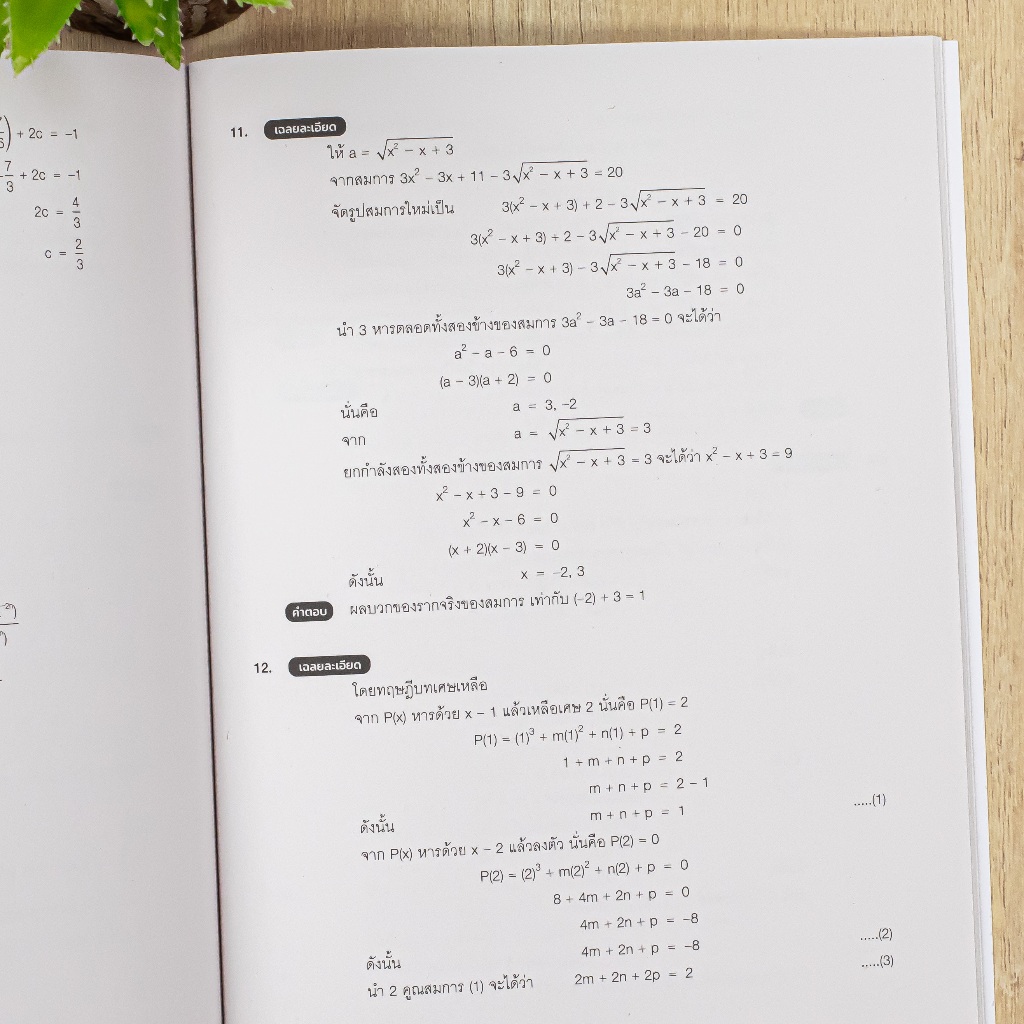 + 2c = −1
7/3 + 2c = −1
2c = 4/3
c = 2/3
11. เฉลยละเอียด
ให้ a = √(x² − x + 3)
จากสมการ 3x² − 3x + 11 − 3√(x² − x + 3) = 20
จัดรูปสมการใหม่เป็น 3(x² − x + 3) + 2 − 3√(x² − x + 3) = 20
3(x² − x + 3) + 2 − 3√(x² − x + 3) − 20 = 0
3(x² − x + 3) − 3√(x² − x + 3) − 18 = 0
3a² − 3a − 18 = 0
นำ 3 หารตลอดทั้งสองข้างของสมการ 3a² − 3a − 18 = 0 จะได้ว่า
a² − a − 6 = 0
(a − 3)(a + 2) = 0
นั่นคือ a = 3, −2
จาก a = √(x² − x + 3) = 3
ยกกำลังสองทั้งสองข้างของสมการ √(x² − x + 3) = 3 จะได้ว่า x² − x + 3 = 9
x² − x + 3 − 9 = 0
x² − x − 6 = 0
(x + 2)(x − 3) = 0
ดังนั้น x = −2, 3
คำตอบ ผลบวกของรากจริงของสมการ เท่ากับ (−2) + 3 = 1
12. เฉลยละเอียด
โดยทฤษฎีบทเศษเหลือ
จาก P(x) หารด้วย x − 1 แล้วเหลือเศษ 2 นั่นคือ P(1) = 2
P(1) = (1)³ + m(1)² + n(1) + p = 2
1 + m + n + p = 2
m + n + p = 2 − 1
ดังนั้น m + n + p = 1 .....(1)
จาก P(x) หารด้วย x − 2 แล้วลงตัว นั่นคือ P(2) = 0
P(2) = (2)³ + m(2)² + n(2) + p = 0
8 + 4m + 2n + p = 0
4m + 2n + p = −8
ดังนั้น 4m + 2n + p = −8 .....(2)
นำ 2 คูณสมการ (1) จะได้ว่า 2m + 2n + 2p = 2 .....(3)